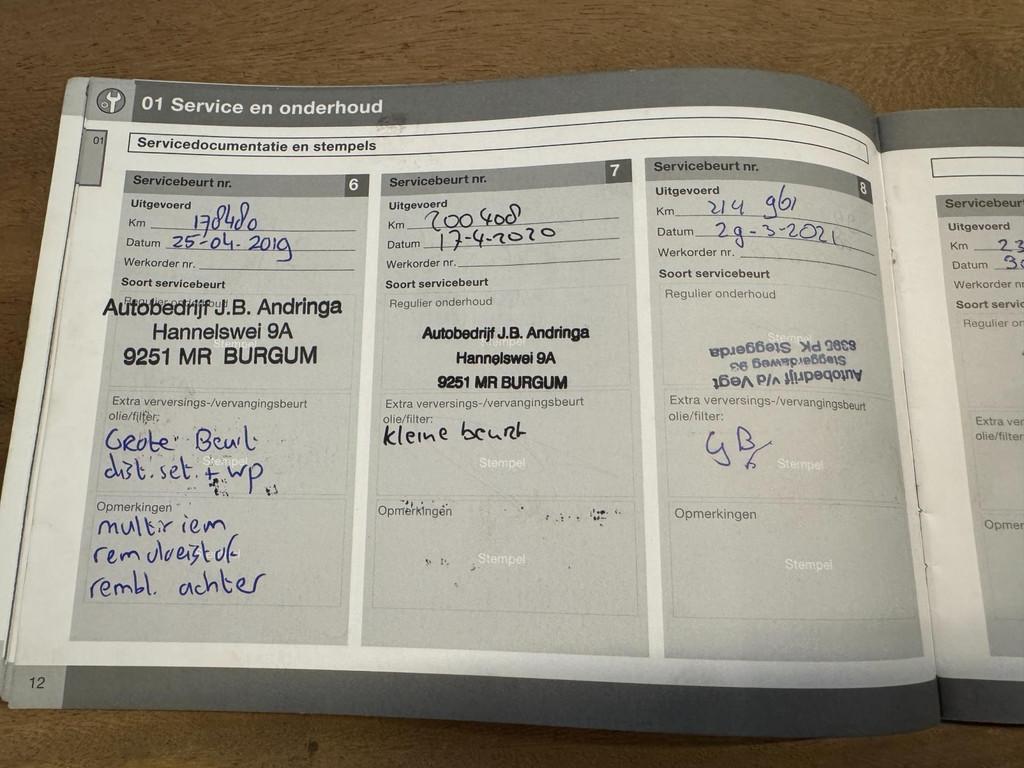 01 Service en onderhoud
01
Servicedocumentatie en stempels
Servicebeurt nr. 6
Uitgevoerd
Km 178480
Datum 25-04-2019
Werkorder nr.
Soort servicebeurt
Regulier onderhoud
Autobedrijf J.B. Andringa
Hannelswei 9A
Stempel
9251 MR BURGUM
Extra verversings-/vervangingsbeurt
olie/filter:
Grote Beurt
dist. set. + wp
Stempel
Opmerkingen
multiriem
remvloeistof
Stempel
rembl. achter
Servicebeurt nr. 7
Uitgevoerd
Km 200408
Datum 17-4-2020
Werkorder nr.
Soort servicebeurt
Regulier onderhoud
Autobedrijf J.B. Andringa
Stempel
Hannelswei 9A
9251 MR BURGUM
Extra verversings-/vervangingsbeurt
olie/filter:
kleine beurt
Stempel
Opmerkingen
Stempel
Servicebeurt nr. 8
Uitgevoerd
Km 214 961
Datum 29-3-2021
Werkorder nr.
Soort servicebeurt
Regulier onderhoud
Stempel
Autobedrijf v/d Vegt
Steggerdaweg 93
8395 PK Steggerda
Extra verversings-/vervangingsbeurt
olie/filter:
GB
Stempel
Opmerkingen
Stempel
12
Servicebeurt
Uitgevoerd
Km 23
Datum 30
Werkorder nr
Soort servic
Regulier
Extra ver
olie/filter
Opmer